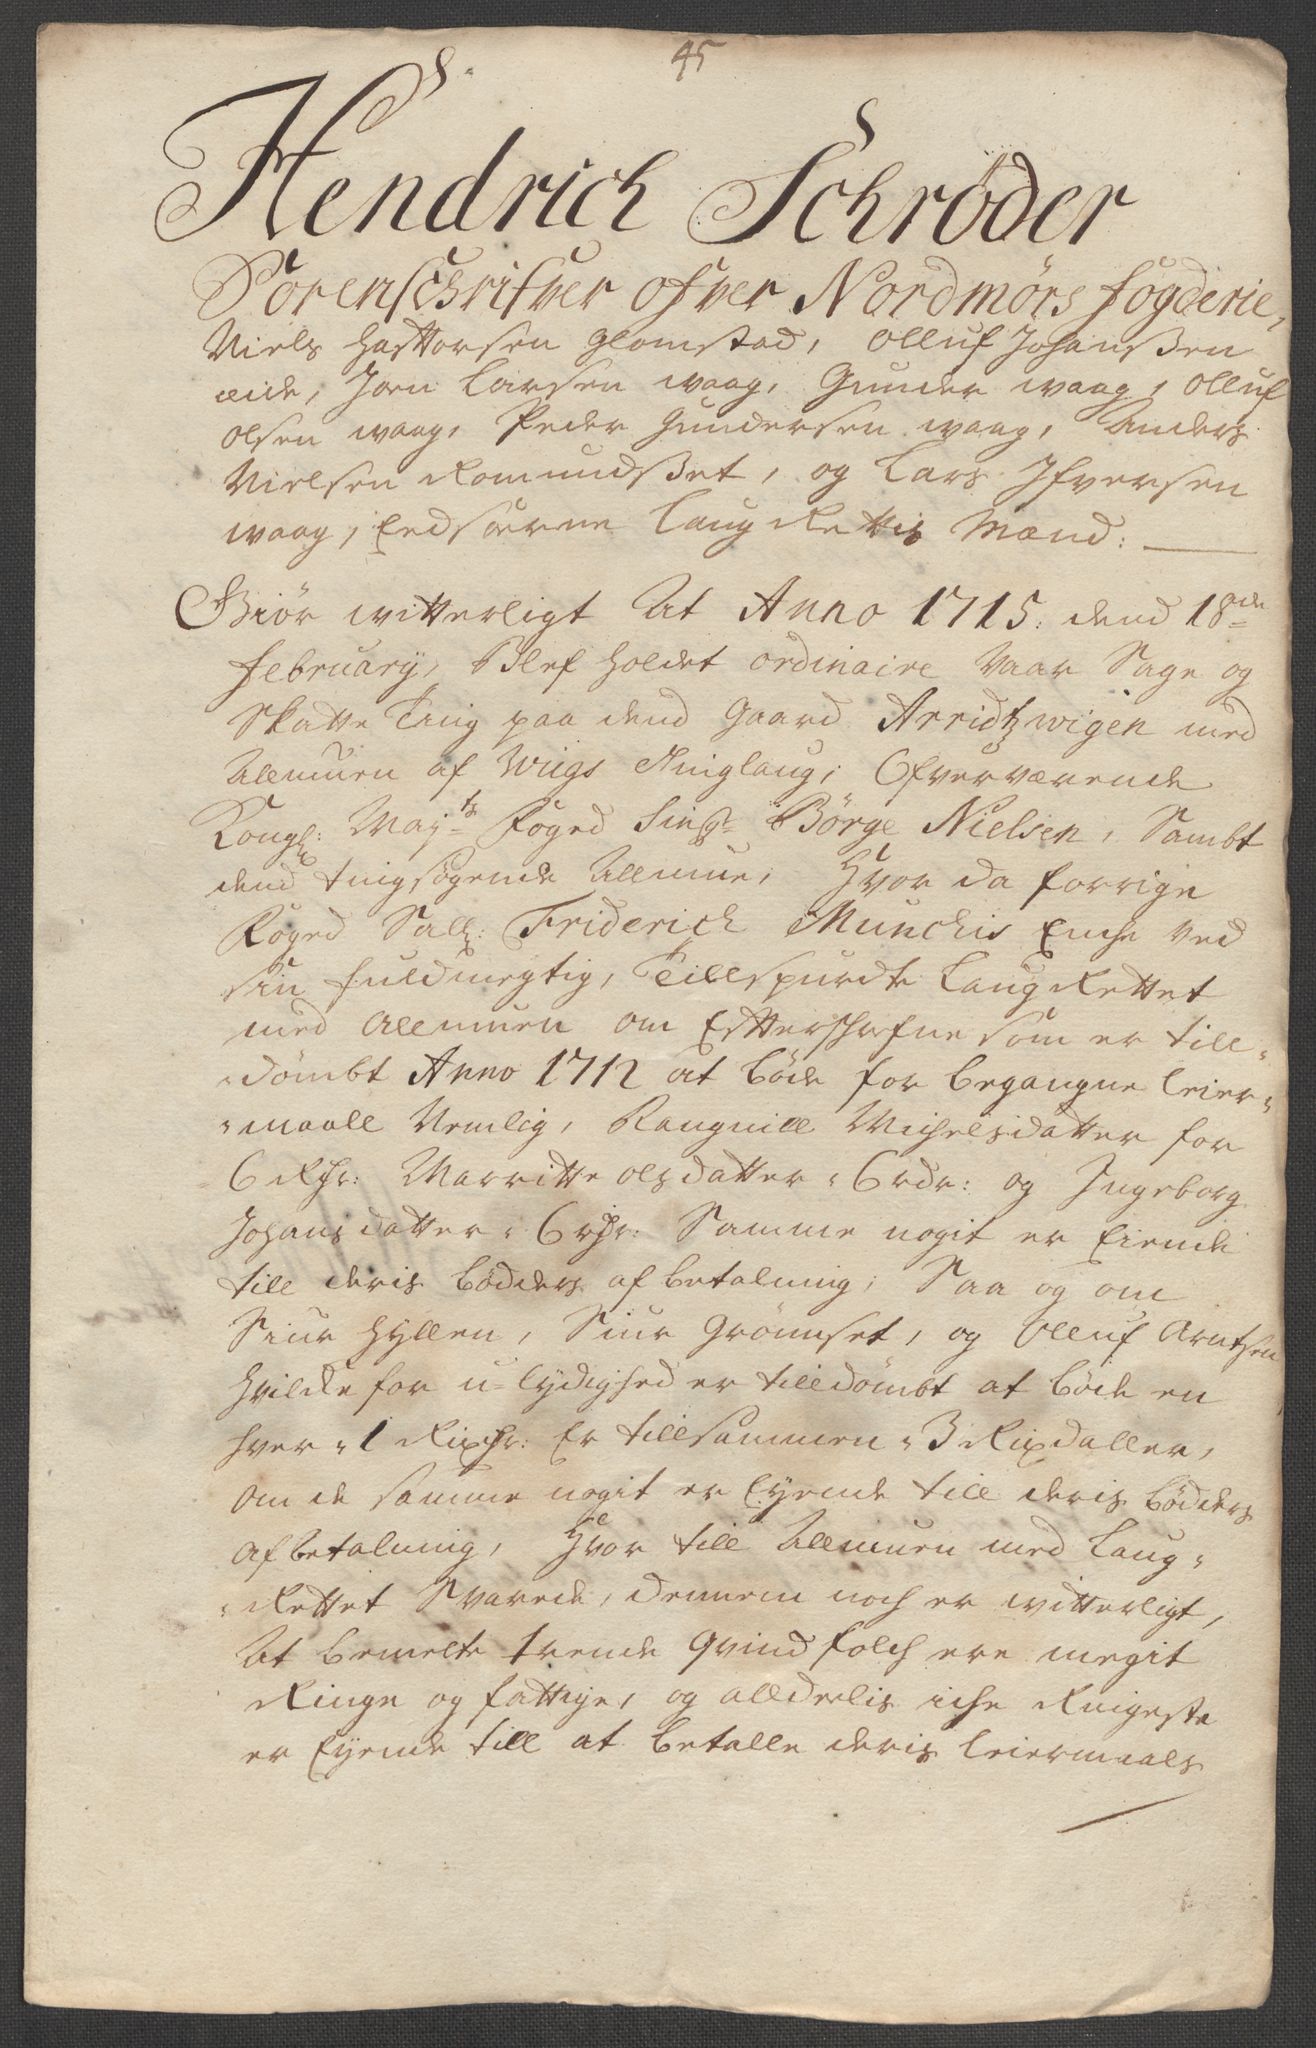 45
Hendrich Schrøder
Sorenschrifver ofver Nordmørs fogderie,
Niels Hattorsen Glomstad, Olluf Johanßen
Eide, Joen Larsen waag, Gunder waag, Olluf
Olsen waag, Peder Gundersen waag, Anders
Nielsen Romundßet, og Lars Ifversen
waag, Eedsorne Laug Rettis Mænd:
Giör witterligt At Anno 1715. dend 18de
February, Blef holdet ordinaire Vaar Sage og
Skatte Ting paa dend Gaard Arridtzwigen med
Allmuen af Wiigs Tinglaug, Ofverværende
Kongl: Maj:ts Foged Sin:r Børge Nielsen, Sambt
dend tingsøgende Allmue, Hvor da forrige
Foged Sall: Friderich Munchis Enche ved
Sin fuldmegtig, Tillspurdte Laug Rettet
med Allmuen om Effterschrefne som er till-
dømbt Anno 1712 at bøde for begangne leier-
maall Nemlig, Raugnill Michelsdatter for
6 Rdr: Marritte olsdatter 6 rdr: og Ingeborg
Johansdatter 6 rdr: Samme nogit er Eiende
till deris bødders afbetalning, Saa og om
Siur Hyllen, Siur Grønnset, og Olluf Arntsen
hvilcke for u-lydighed er tilldømbt at bøde en
hver 1 Rixdr: Er tillsammen 3 Rixdaller,
om de samme nogit er Eyende till deris bødders
afbetalning, Hvor till Allmuen med Laug-
Rettet Svarede, dennem noch er witterligt,
At bemelte trende qvindfolch ere megit
Ringe og fattige, og alldelis iche Ringeste
er Eyende till at betalle deris leiermaals